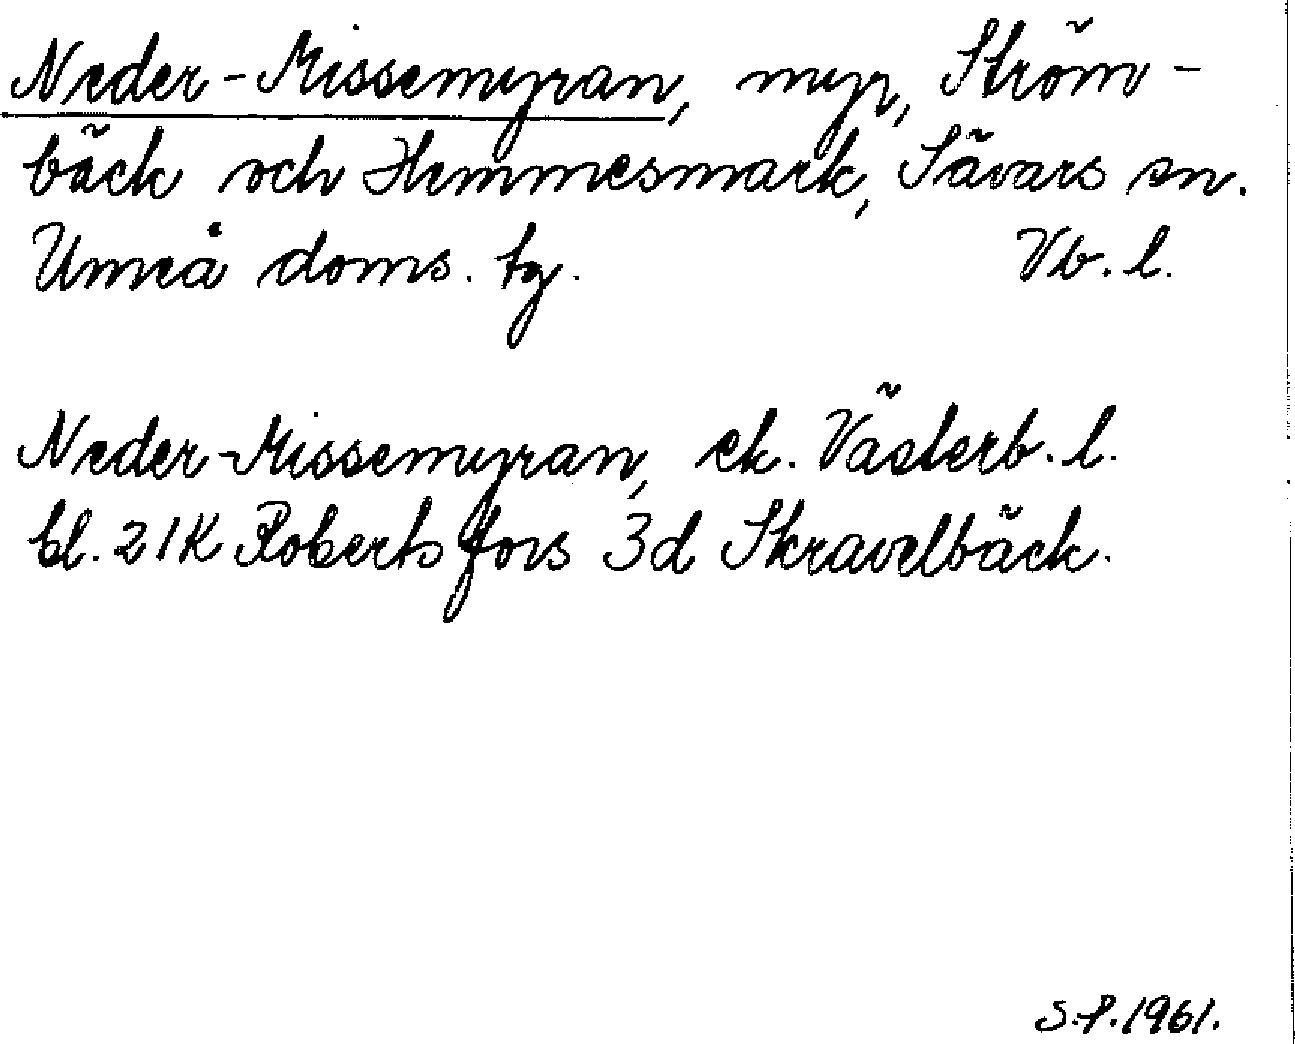 Neder-Missemyran, myr, Ström-
bäck och Hemmesmark, Sävars sn.
Umeå doms. tg. Vb. l.
Neder-Missemyran, ek. Västerb. l.
bl. 21K Robertsfors 3d Skravelbäck.
S.P. 1961.